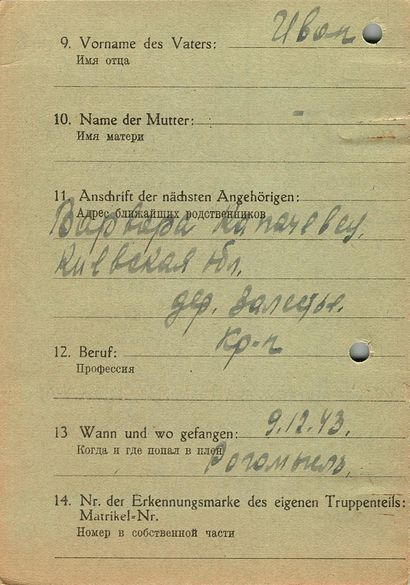 9. Vorname des Vaters: Иван
Имя отца
10. Name der Mutter: -
Имя матери
11. Anschrift der nächsten Angehörigen:
Адрес ближайших родственников
Варвара
Киевская обл.
дер. Залесье.
12. Beruf: Кр-н
Профессия
13 Wann und wo gefangen: 9.12.43.
Когда и где попал в плен
14. Nr. der Erkennungsmarke des eigenen Truppenteils:
Matrikel-Nr.
Номер в собственной части